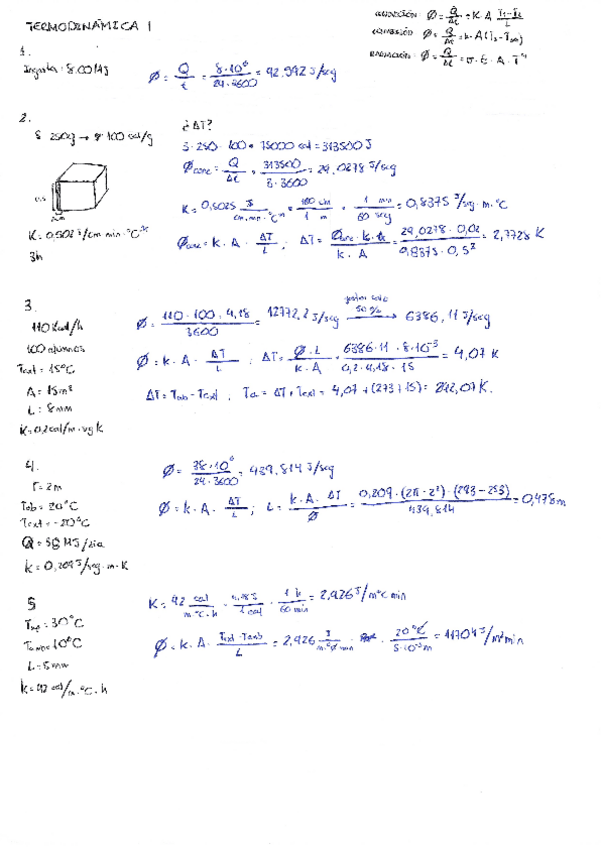 TERMODINÁMICA 1
CONDUCCIÓN Φ = Q/Δt = K·A (T₁-T₂)/L
Φ = Q/Δt = h·A(Ts-T∞)
RADIACIÓN Φ = Q/Δt = σ·E·A·T⁴
1.
Ingesta: 8.00 MJ
Φ = Q/t = 8·10⁶/24·3600 = 92,592 J/seg
2.
¿ΔT?
3·250·100 = 75000 cal = 313500 J
Φconc = Q/Δt = 313500/3·3600 = 29,0278 J/seg
K = 0,5025 J/cm·min·°C · 100 cm/1 m · 1 min/60 seg = 0,8375 J/seg·m·°C
K = 0,502 J/cm min·°C
3h
Φconc = K·A·ΔT/L ; ΔT = /K·A = 29,0278·0,02/0,8375·0,5² = 2,7728 K
3.
110 Kcal/h
100 alumnos
Text = 15°C
A = 15m²
L = 8mm
K = 0,2cal/m·ºK·seg
Φ = 110·100·4,18/3600 = 12772,2 J/seg 50% → 6386,11 J/seg
Φ = K·A·ΔT/L ; ΔT = Φ·L/K·A = 6386,11·8·10⁻³/0,2·4,18·15 = 4,07 K
ΔT = Tab - Text , = ΔT + Text = 4,07 + (273+15) = 292,07 K.
4.
r = 2m
Tab = 20°C
Text = -20°C
Q = 38 MJ/dia
K = 0,209 J/seg·m·K
Φ = 38·10⁶/24·3600 = 439,814 J/seg
Φ = K·A·ΔT/L ; L = K·A·ΔT/Φ = 0,209·(2π·2²)·(293-253)/439,814 = 0,478m
5
= 30°C
= 10°C
L = 5mm
K = 42 cal/m·°C·h
K = 42 cal/m·°C·h · 4,18J/1 cal · 1 h/60 min = 2,926 J/m°C min
Φ = K·A· Text-Tamb/L = 2,926 · 20°C/5·10⁻³m = 11704 J/m²min